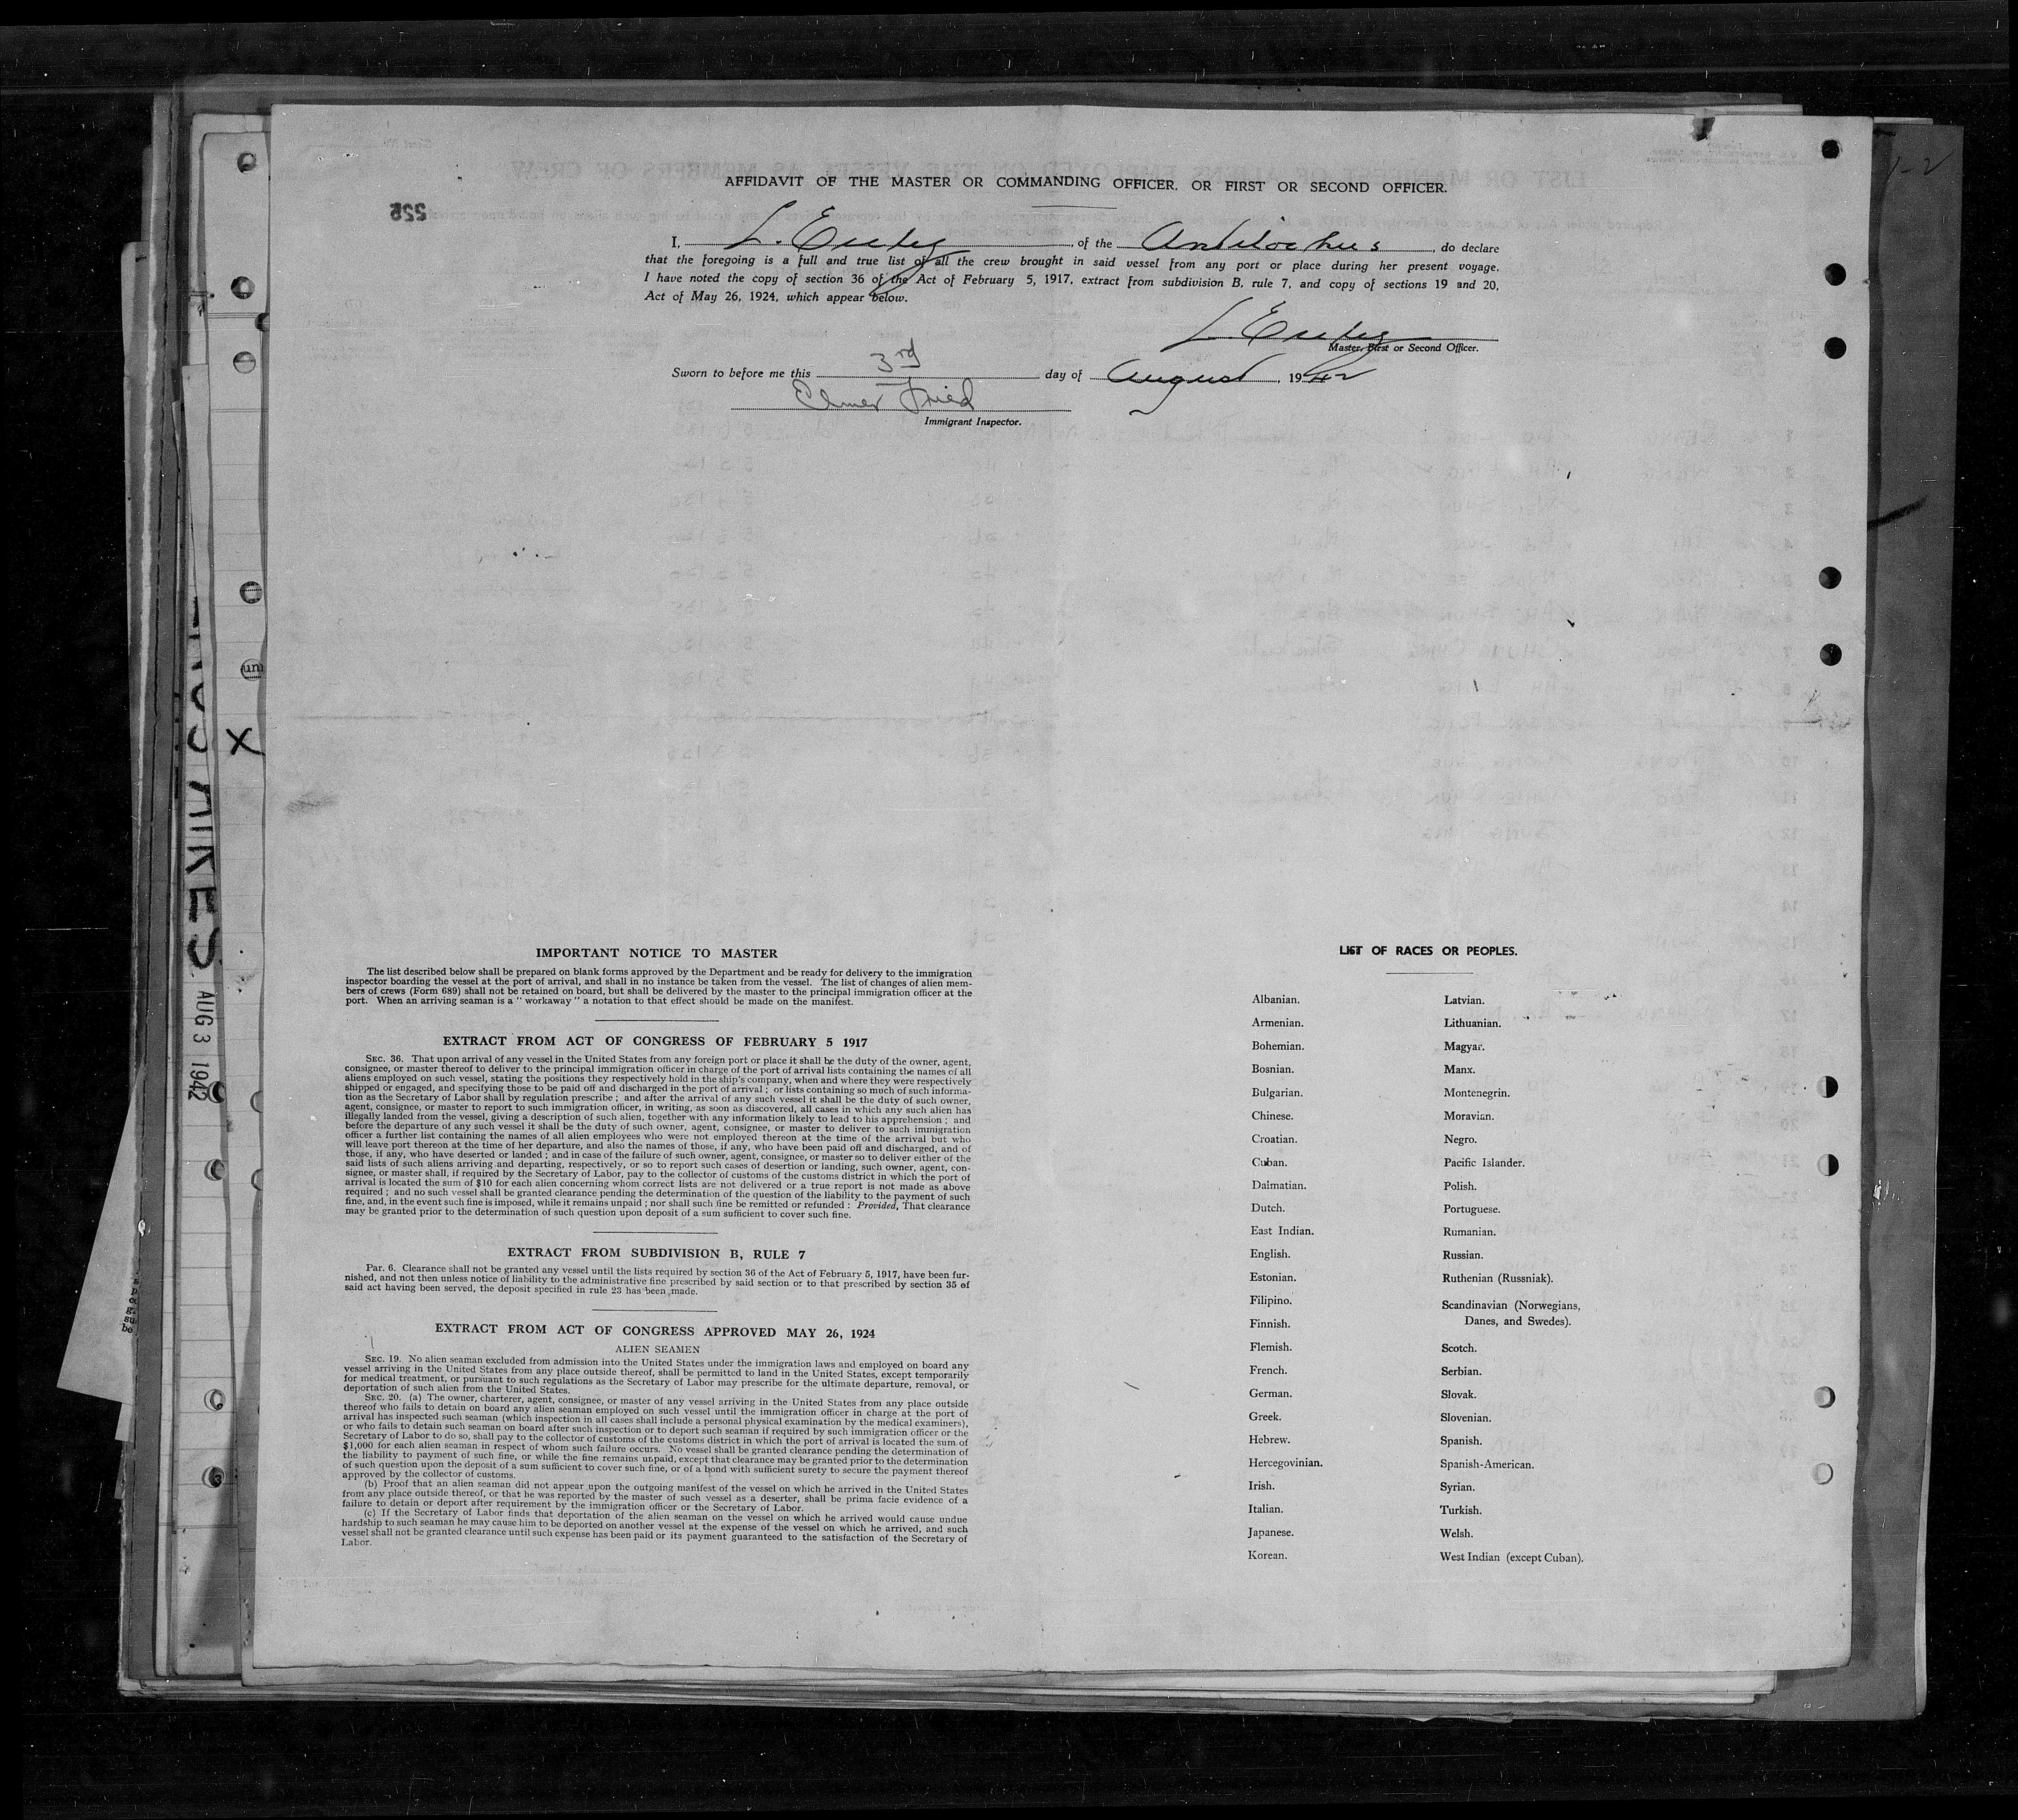 AFFIDAVIT OF THE MASTER OR COMMANDING OFFICER. OR FIRST OR SECOND OFFICER.
225
I, L. of the Antilochus, do declare
that the foregoing is a full and true list of all the crew brought in said vessel from any port or place during her present voyage.
I have noted the copy of section 36 of the Act of February 5, 1917, extract from subdivision B, rule 7, and copy of sections 19 and 20,
Act of May 26, 1924, which appear below.
L.
Master, First or Second Officer.
Sworn to before me this 3rd day of August, 1942
Elmer Fried
Immigrant Inspector.
X
AUG 3 1942
IMPORTANT NOTICE TO MASTER
The list described below shall be prepared on blank forms approved by the Department and be ready for delivery to the immigration
inspector boarding the vessel at the port of arrival, and shall in no instance be taken from the vessel. The list of changes of alien mem-
bers of crews (Form 689) shall not be retained on board, but shall be delivered by the master to the principal immigration officer at the
port. When an arriving seaman is a " workaway " a notation to that effect should be made on the manifest.
EXTRACT FROM ACT OF CONGRESS OF FEBRUARY 5 1917
SEC. 36. That upon arrival of any vessel in the United States from any foreign port or place it shall be the duty of the owner, agent,
consignee, or master thereof to deliver to the principal immigration officer in charge of the port of arrival lists containing the names of all
aliens employed on such vessel, stating the positions they respectively hold in the ship's company, when and where they were respectively
shipped or engaged, and specifying those to be paid off and discharged in the port of arrival ; or lists containing so much of such informa-
tion as the Secretary of Labor shall by regulation prescribe ; and after the arrival of any such vessel it shall be the duty of such owner,
agent, consignee, or master to report to such immigration officer, in writing, as soon as discovered, all cases in which any such alien has
illegally landed from the vessel, giving a description of such alien, together with any information likely to lead to his apprehension ; and
before the departure of any such vessel it shall be the duty of such owner, agent, consignee, or master to deliver to such immigration
officer a further list containing the names of all alien employees who were not employed thereon at the time of the arrival but who
will leave port thereon at the time of her departure, and also the names of those, if any, who have been paid off and discharged, and of
those, if any, who have deserted or landed ; and in case of the failure of such owner, agent, consignee, or master so to deliver either of the
said lists of such aliens arriving and departing, respectively, or so to report such cases of desertion or landing, such owner, agent, con-
signee, or master shall, if required by the Secretary of Labor, pay to the collector of customs of the customs district in which the port of
arrival is located the sum of $10 for each alien concerning whom correct lists are not delivered or a true report is not made as above
required ; and no such vessel shall be granted clearance pending the determination of the question of the liability to the payment of such
fine, and, in the event such fine is imposed, while it remains unpaid ; nor shall such fine be remitted or refunded : Provided, That clearance
may be granted prior to the determination of such question upon deposit of a sum sufficient to cover such fine.
EXTRACT FROM SUBDIVISION B, RULE 7
Par. 6. Clearance shall not be granted any vessel until the lists required by section 36 of the Act of February 5, 1917, have been fur-
nished, and not then unless notice of liability to the administrative fine prescribed by said section or to that prescribed by section 35 of
said act having been served, the deposit specified in rule 23 has been made.
EXTRACT FROM ACT OF CONGRESS APPROVED MAY 26, 1924
ALIEN SEAMEN
SEC. 19. No alien seaman excluded from admission into the United States under the immigration laws and employed on board any
vessel arriving in the United States from any place outside thereof, shall be permitted to land in the United States, except temporarily
for medical treatment, or pursuant to such regulations as the Secretary of Labor may prescribe for the ultimate departure, removal, or
deportation of such alien from the United States.
SEC. 20. (a) The owner, charterer, agent, consignee, or master of any vessel arriving in the United States from any place outside
thereof who fails to detain on board any alien seaman employed on such vessel until the immigration officer in charge at the port of
arrival has inspected such seaman (which inspection in all cases shall include a personal physical examination by the medical examiners),
or who fails to detain such seaman on board after such inspection or to deport such seaman if required by such immigration officer or the
Secretary of Labor to do so, shall pay to the collector of customs of the customs district in which the port of arrival is located the sum of
$1,000 for each alien seaman in respect of whom such failure occurs. No vessel shall be granted clearance pending the determination of
the liability to payment of such fine, or while the fine remains unpaid, except that clearance may be granted prior to the determination
of such question upon the deposit of a sum sufficient to cover such fine, or of a bond with sufficient surety to secure the payment thereof
approved by the collector of customs.
(b) Proof that an alien seaman did not appear upon the outgoing manifest of the vessel on which he arrived in the United States
from any place outside thereof, or that he was reported by the master of such vessel as a deserter, shall be prima facie evidence of a
failure to detain or deport after requirement by the immigration officer or the Secretary of Labor.
(c) If the Secretary of Labor finds that deportation of the alien seaman on the vessel on which he arrived would cause undue
hardship to such seaman he may cause him to be deported on another vessel at the expense of the vessel on which he arrived, and such
vessel shall not be granted clearance until such expense has been paid or its payment guaranteed to the satisfaction of the Secretary of
Labor.
LIST OF RACES OR PEOPLES.
Albanian.
Armenian.
Bohemian.
Bosnian.
Bulgarian.
Chinese.
Croatian.
Cuban.
Dalmatian.
Dutch.
East Indian.
English.
Estonian.
Filipino.
Finnish.
Flemish.
French.
German.
Greek.
Hebrew.
Hercegovinian.
Irish.
Italian.
Japanese.
Korean.
Latvian.
Lithuanian.
Magyar.
Manx.
Montenegrin.
Moravian.
Negro.
Pacific Islander.
Polish.
Portuguese.
Rumanian.
Russian.
Ruthenian (Russniak).
Scandinavian (Norwegians,
Danes, and Swedes).
Scotch.
Serbian.
Slovak.
Slovenian.
Spanish.
Spanish-American.
Syrian.
Turkish.
Welsh.
West Indian (except Cuban).